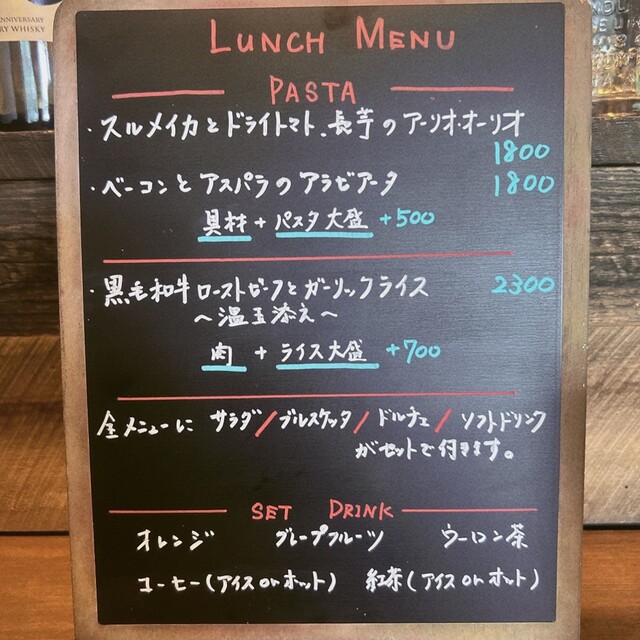 NNIVERSARY
RY WHISKY
LUNCH MENU
PASTA
・スルメイカとドライトマト、長芋のアーリオ・オーリオ
1800
・ベーコンとアスパラのアラビアータ 1800
具材 + パスタ大盛 +500
・黒毛和牛ローストビーフとガーリックライス 2300
～温玉添え～
肉 + ライス大盛 +700
全メニューに サラダ/ブルスケッタ/ドルチェ/ソフトドリンク
がセットで付きます。
SET DRINK
オレンジ グレープフルーツ ウーロン茶
コーヒー(アイス or ホット) 紅茶(アイス or ホット)